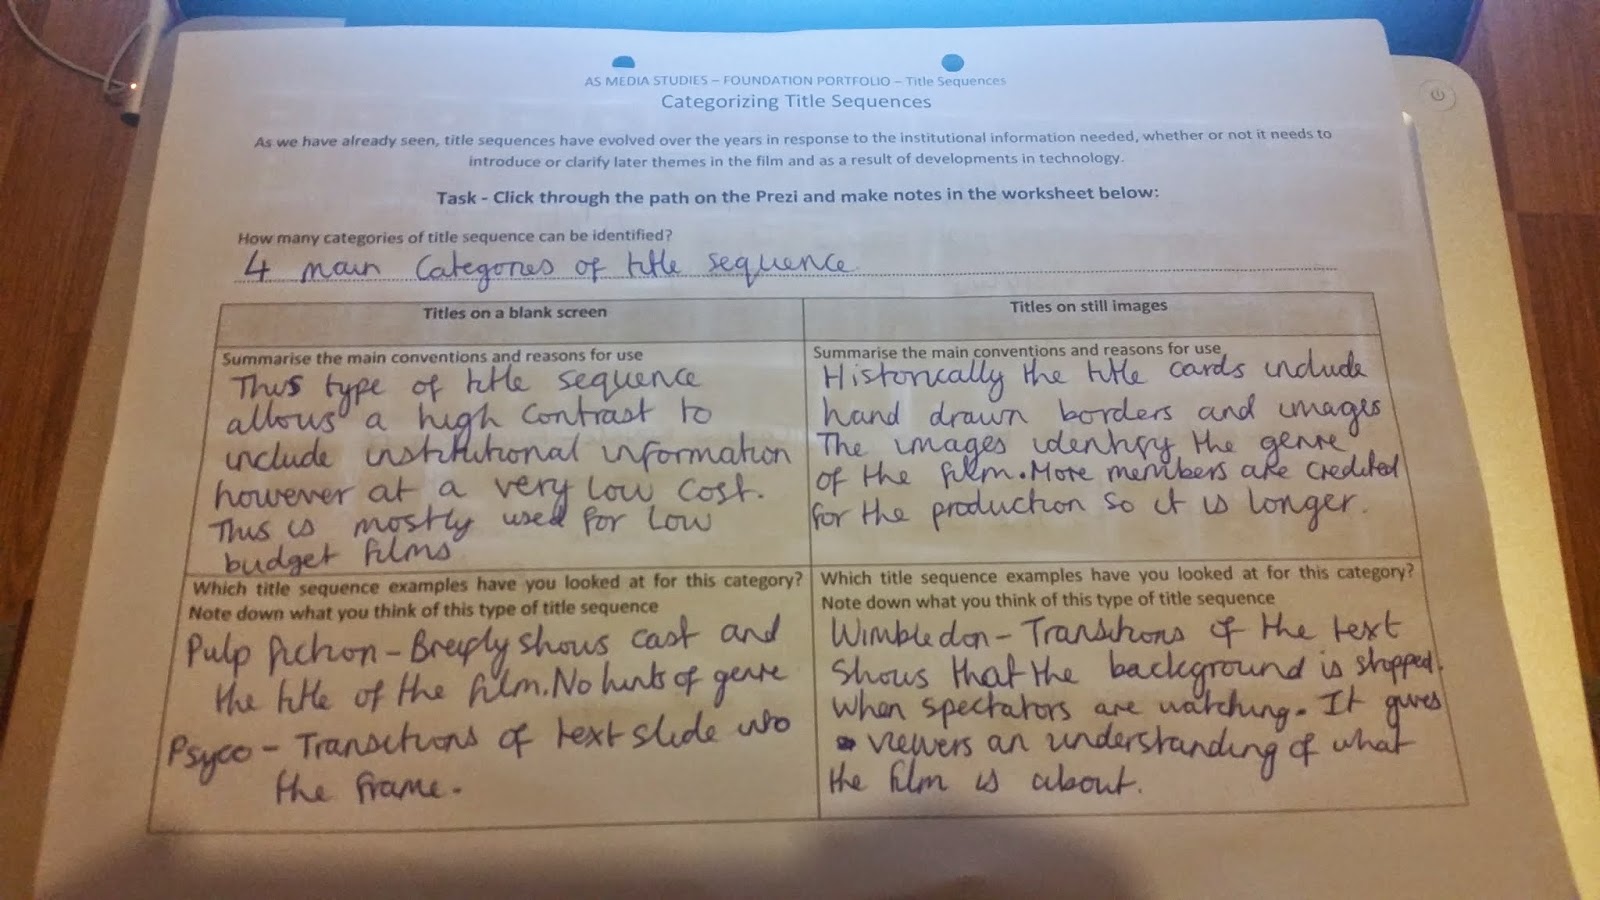 AS MEDIA STUDIES – FOUNDATION PORTFOLIO – Title Sequences
Categorizing Title Sequences
As we have already seen, title sequences have evolved over the years in response to the institutional information needed, whether or not it needs to
introduce or clarify later themes in the film and as a result of developments in technology.
Task - Click through the path on the Prezi and make notes in the worksheet below:
How many categories of title sequence can be identified?
4 main Categories of title sequence
Titles on a blank screen
Summarise the main conventions and reasons for use
This type of title sequence
allows a high contrast to
include institutional information
however at a very low cost.
This is mostly used for low
budget films
Which title sequence examples have you looked at for this category?
Note down what you think of this type of title sequence
Pulp fiction - Breifly shows cast and
the title of the film. No hints of genre
Psyco - Transitions of text slide into
the frame.
Titles on still images
Summarise the main conventions and reasons for use
Historically the title cards include
hand drawn borders and images
The images identify the genre
of the film. More members are credited
for the production so it is longer.
Which title sequence examples have you looked at for this category?
Note down what you think of this type of title sequence
Wimbledon - Transitions of the text
shows that the background is stopped.
when spectators are watching. It gives
viewers an understanding of what
the film is about.